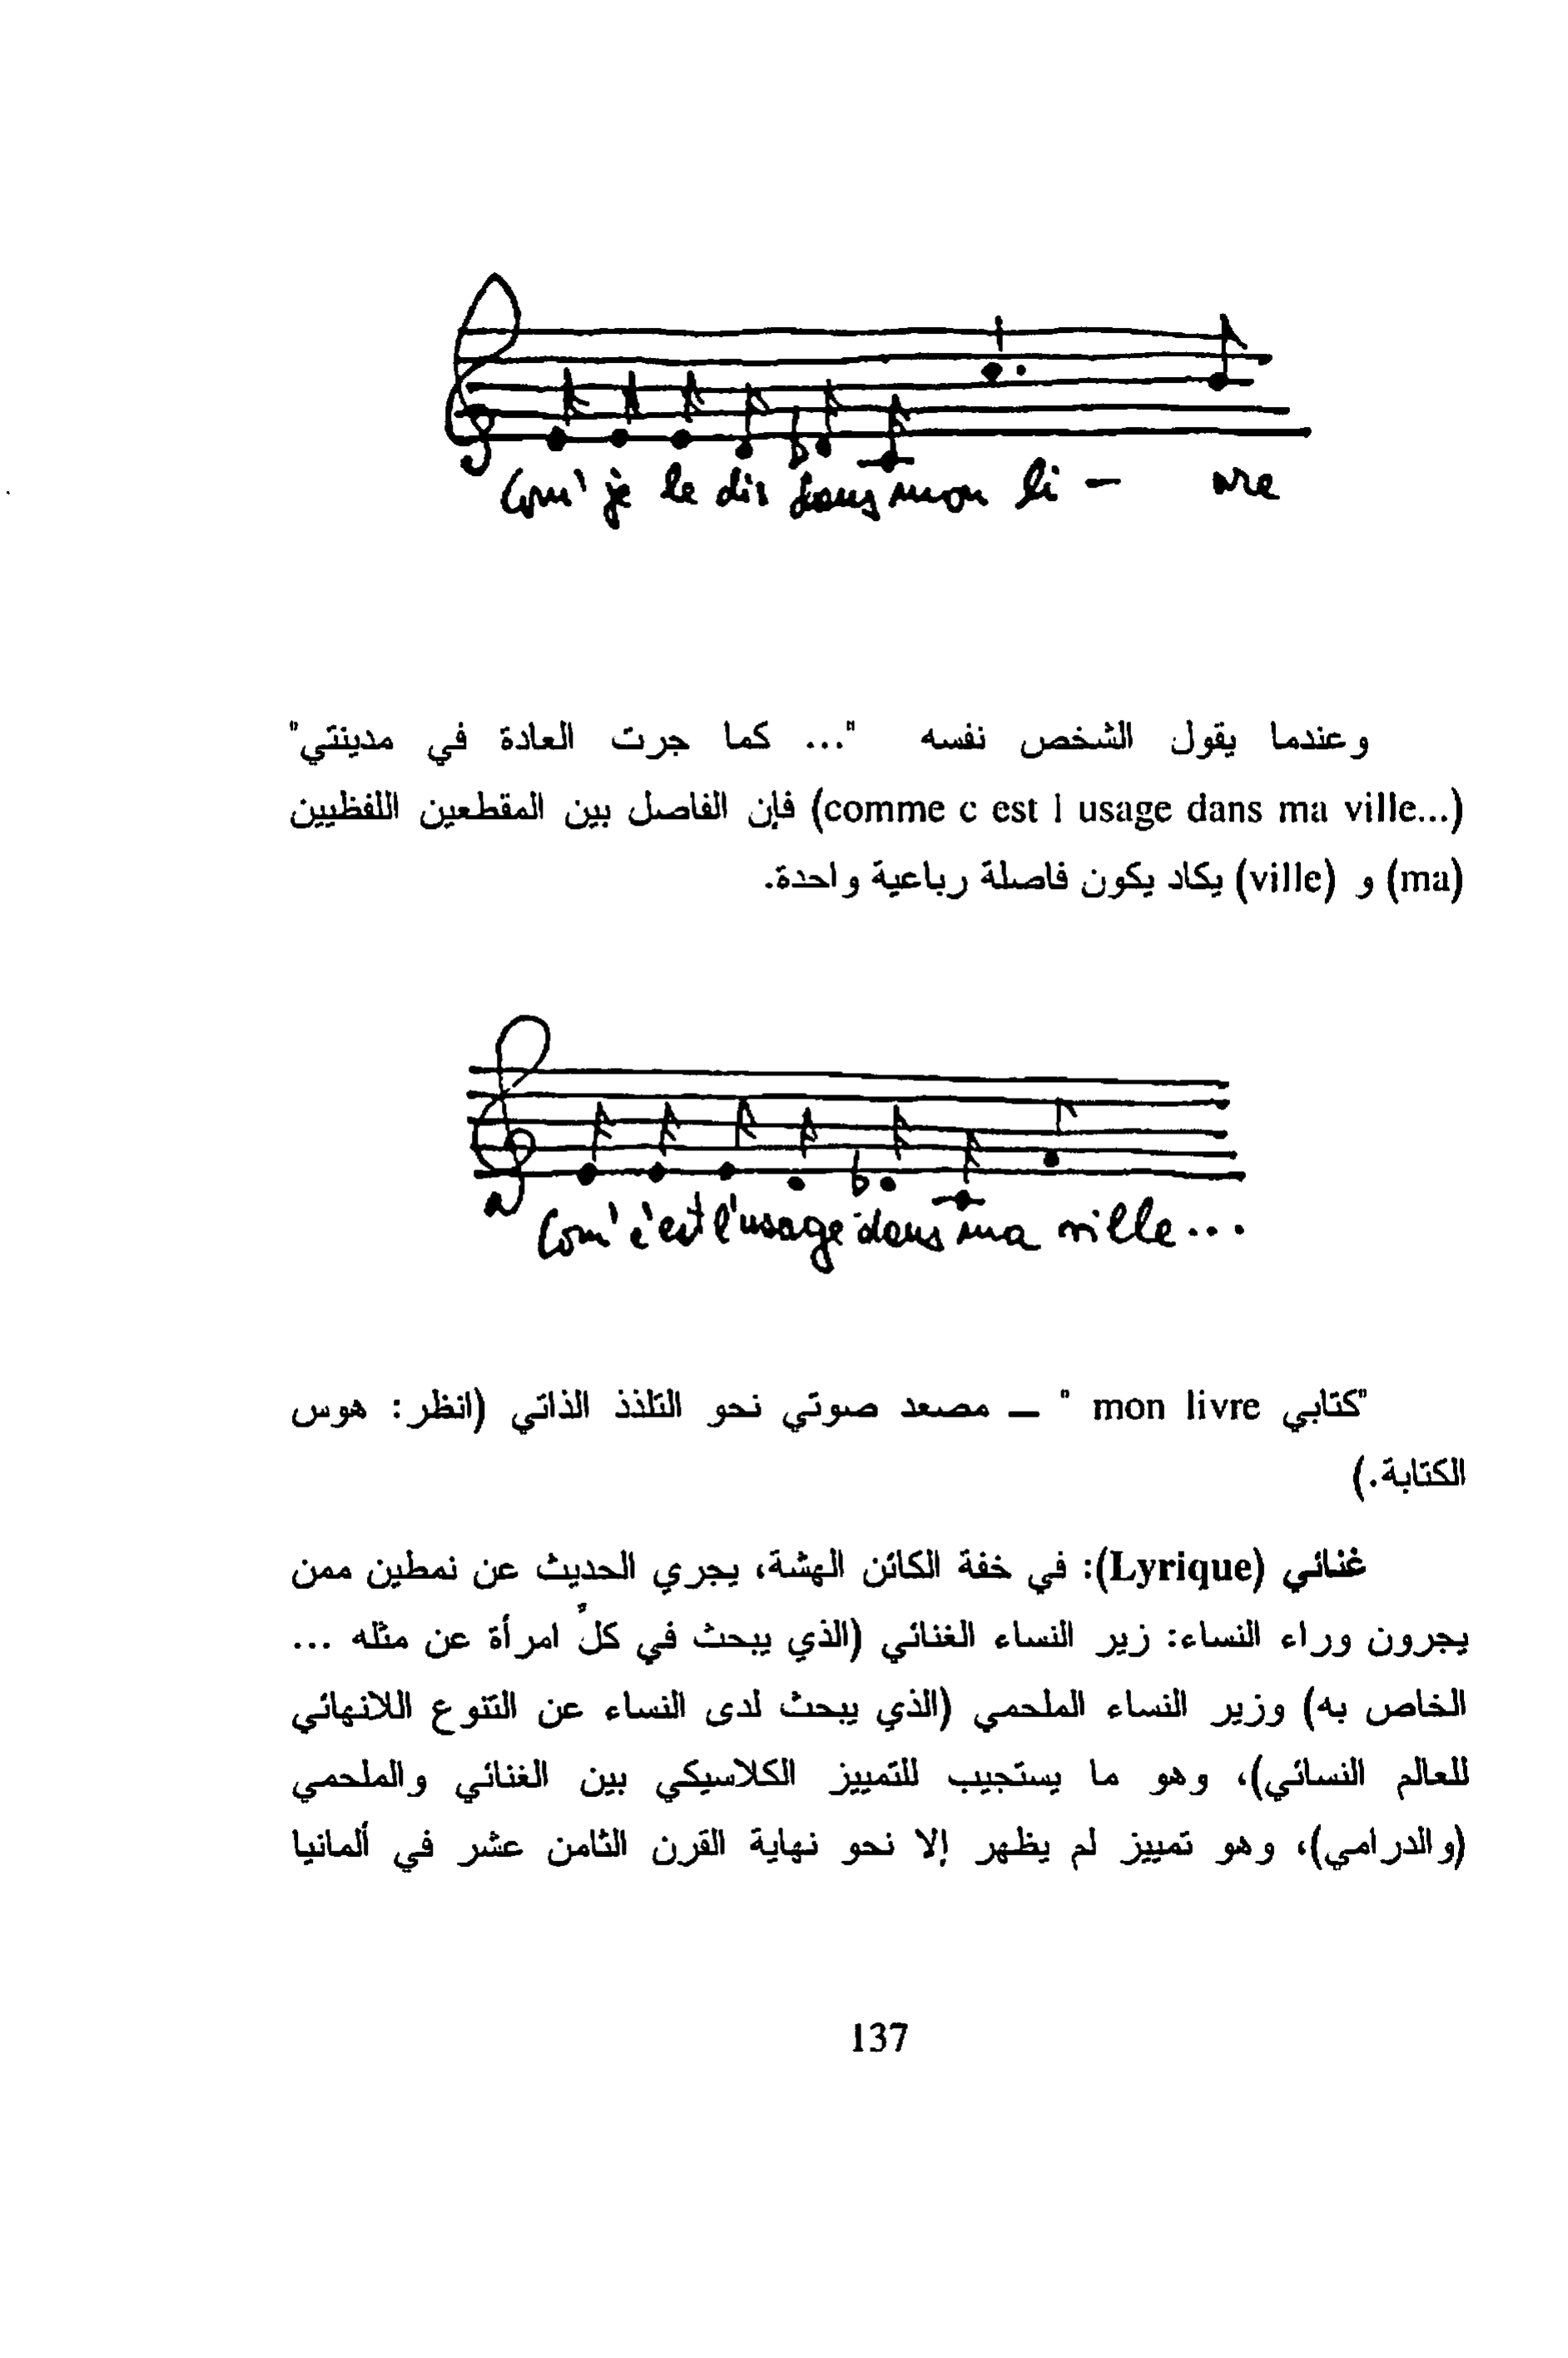 Com' je le dis dans mon li – vre
وعندما يقول الشخص نفسه "... كما جرت العادة في مدينتي"
(comme c est l usage dans ma ville...) فإن الفاصل بين المقطعين اللفظيين
(ma) و (ville) يكاد يكون فاصلة رباعية واحدة.
Com' c'est l'usage dans ma ville...
"كتابي mon livre " – مصعد صوتي نحو التلذذ الذاتي (انظر: هوس
الكتابة.)
غنائي (Lyrique): في خفة الكائن الهشة، يجري الحديث عن نمطين ممن
يجرون وراء النساء: زير النساء الغنائي (الذي يبحث في كلّ امرأة عن مثله ...
الخاص به) وزير النساء الملحمي (الذي يبحث لدى النساء عن التنوع اللانهائي
للعالم النسائي)، وهو ما يستجيب للتمييز الكلاسيكي بين الغنائي والملحمي
(والدرامي)، وهو تمييز لم يظهر إلا نحو نهاية القرن الثامن عشر في ألمانيا
137